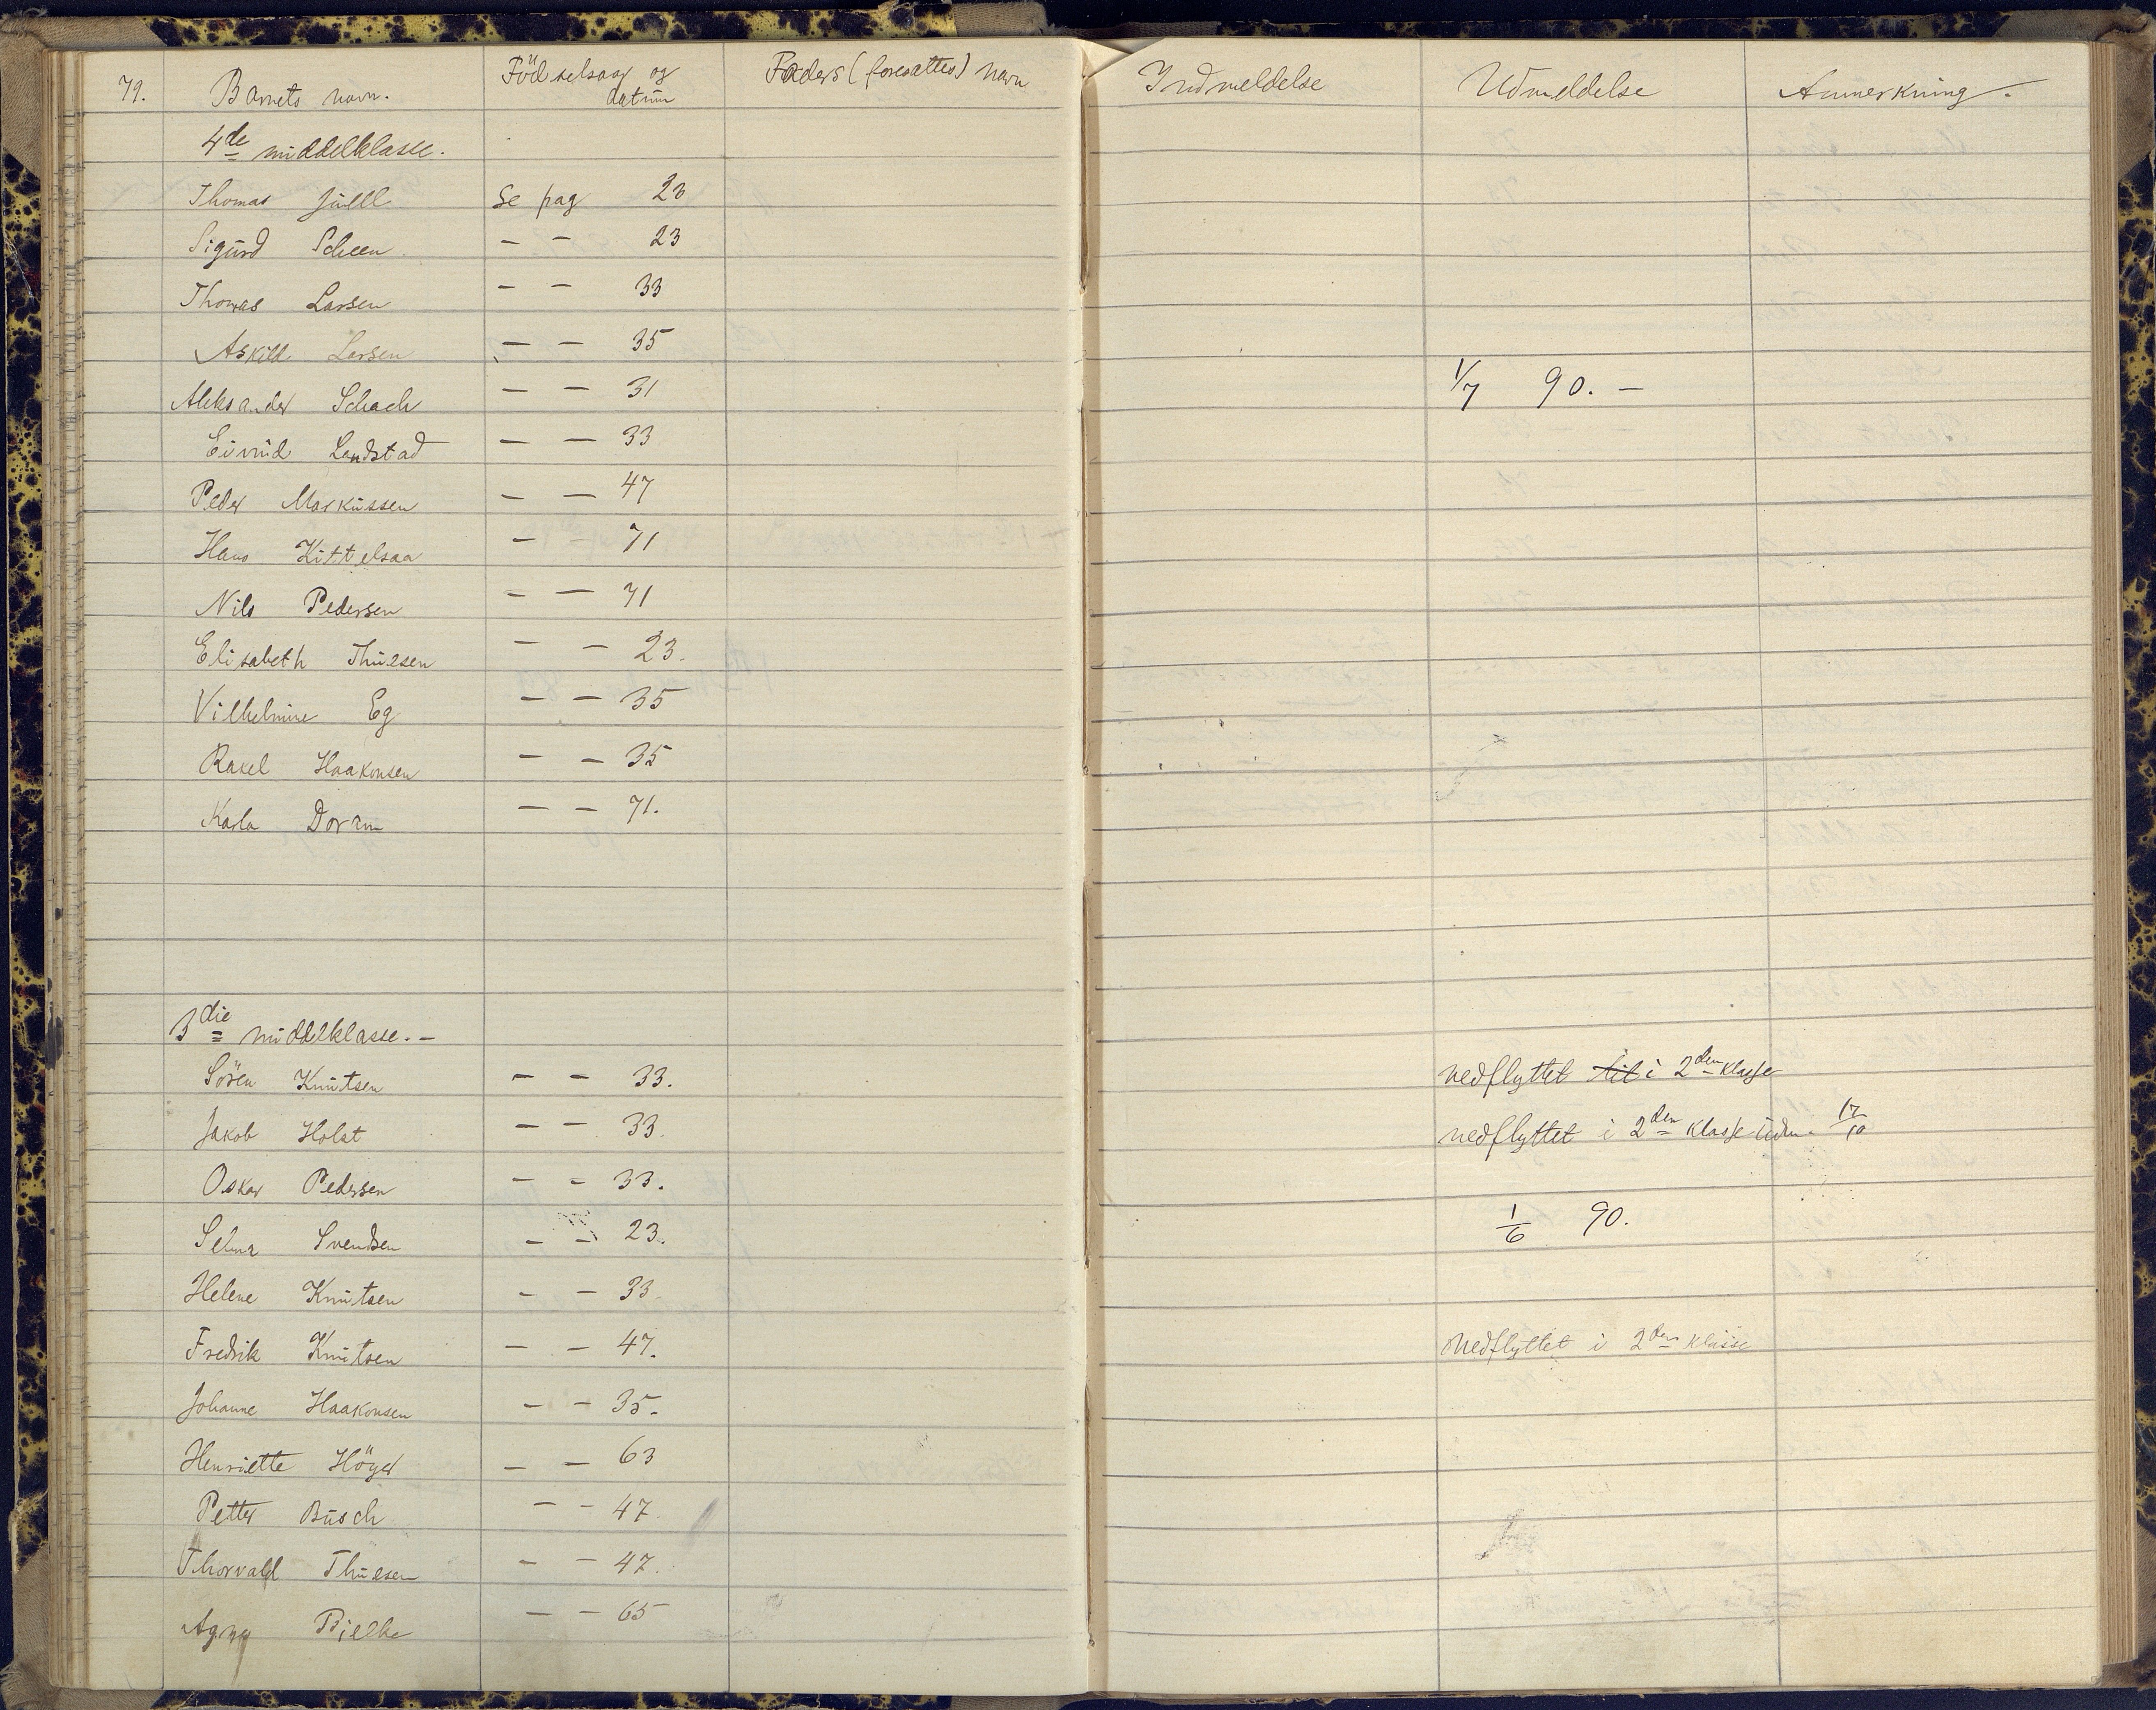 79. Barnets navn. Födselsaar og datum Faders (foresattes) navn Indmeldelse Udmeldelse Anmerkning.
4de middelklasse.
Thomas Juell Se pag 23
Sigurd Scheen - - 23
Thomas Larsen - - 33
Askild Larsen - - 35
Aleksander Schach - - 31 1/7 90. -
Eivind Landstad - - 33
Peder Markussen - - 47
Hans Kittelsaa - - 71
Nils Pedersen - - 71
Elisabeth Thulsen - - 23.
Vilhelmine Eg - - 35
Rakel Haakonsen - - 35
Karla Doram - - 71.
3die middelklasse. -
Sören Knutsen - - 33. nedflyttet til i 2den klasse
Jakob Holst - - 33. nedflyttet i 2den klasse udm. 17/10
Oskar Pedersen - - 33.
Selma Svendsen - - 23. 1/6 90.
Helene Knutsen - - 33.
Fredrik Knutsen - - 47. nedflyttet i 2den klasse
Johanne Haakonsen - - 35.
Henriette Höyer - - 63
Petter Busch - - 47.
Thorvald Thulsen - - 47.
Agny Bjelke - - 65